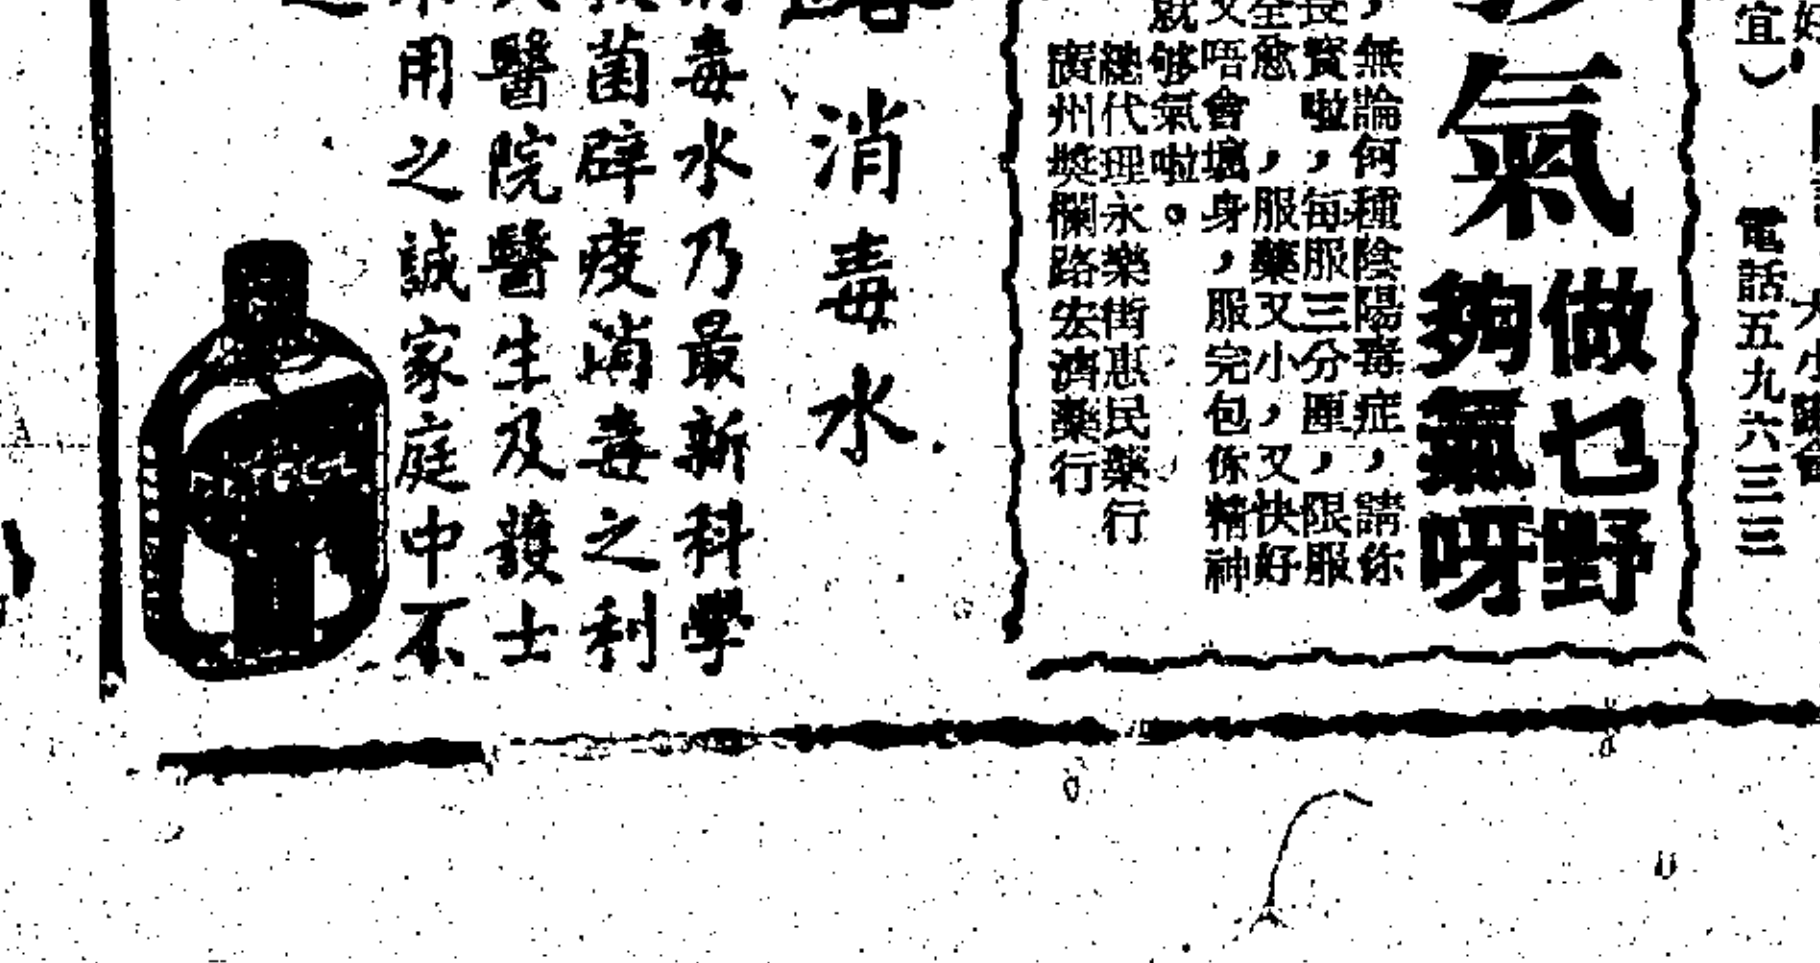 宜）
電話五九六三三
氣
做乜野
夠氣呀
，無論何種陰陽毒症，請你
實啦，每服三分厘，限服
全愈，服藥又小，又快好
又唔會壞身，服完包你精神
就够氣啦。
總代理永樂街惠民藥行
廣州槳欄路宏濟藥行
消毒水
消毒水乃最新科學
菌辟疫消毒之利
醫院醫生及護士
用之誠家庭中不